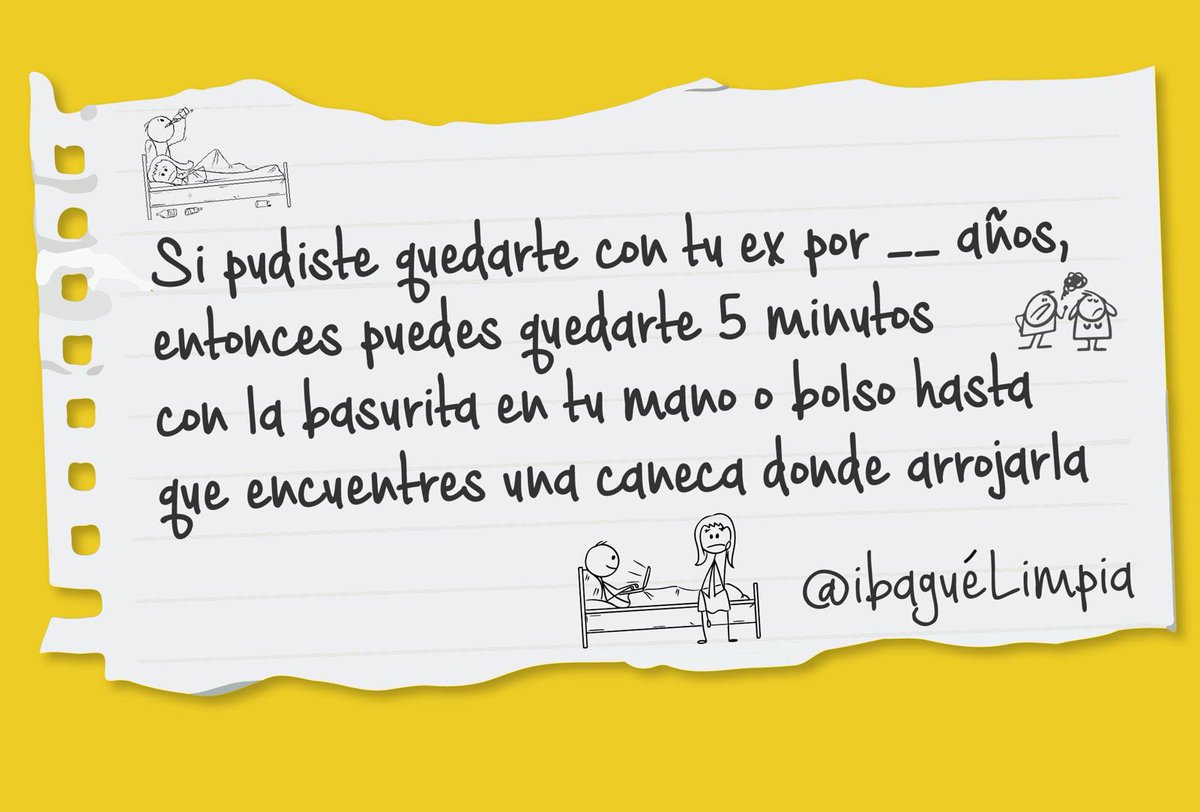 Si pudiste quedarte con tu ex por __ años,
entonces puedes quedarte 5 minutos
con la basurita en tu mano o bolso hasta
que encuentres una caneca donde arrojarla
@ibaguéLimpia